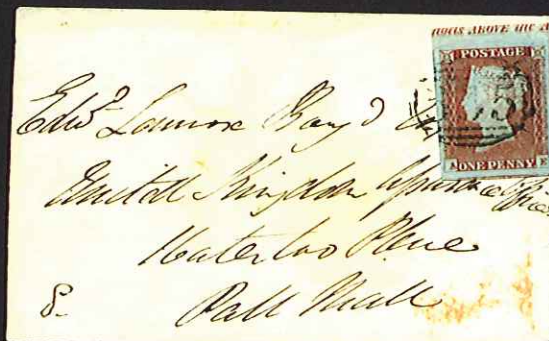 ABOVE the
POSTAGE
75
A ONE PENNY E
Edwd Lennox Boyd
United Kingdom Assurance Office
Waterloo Place
Pall Mall
8-